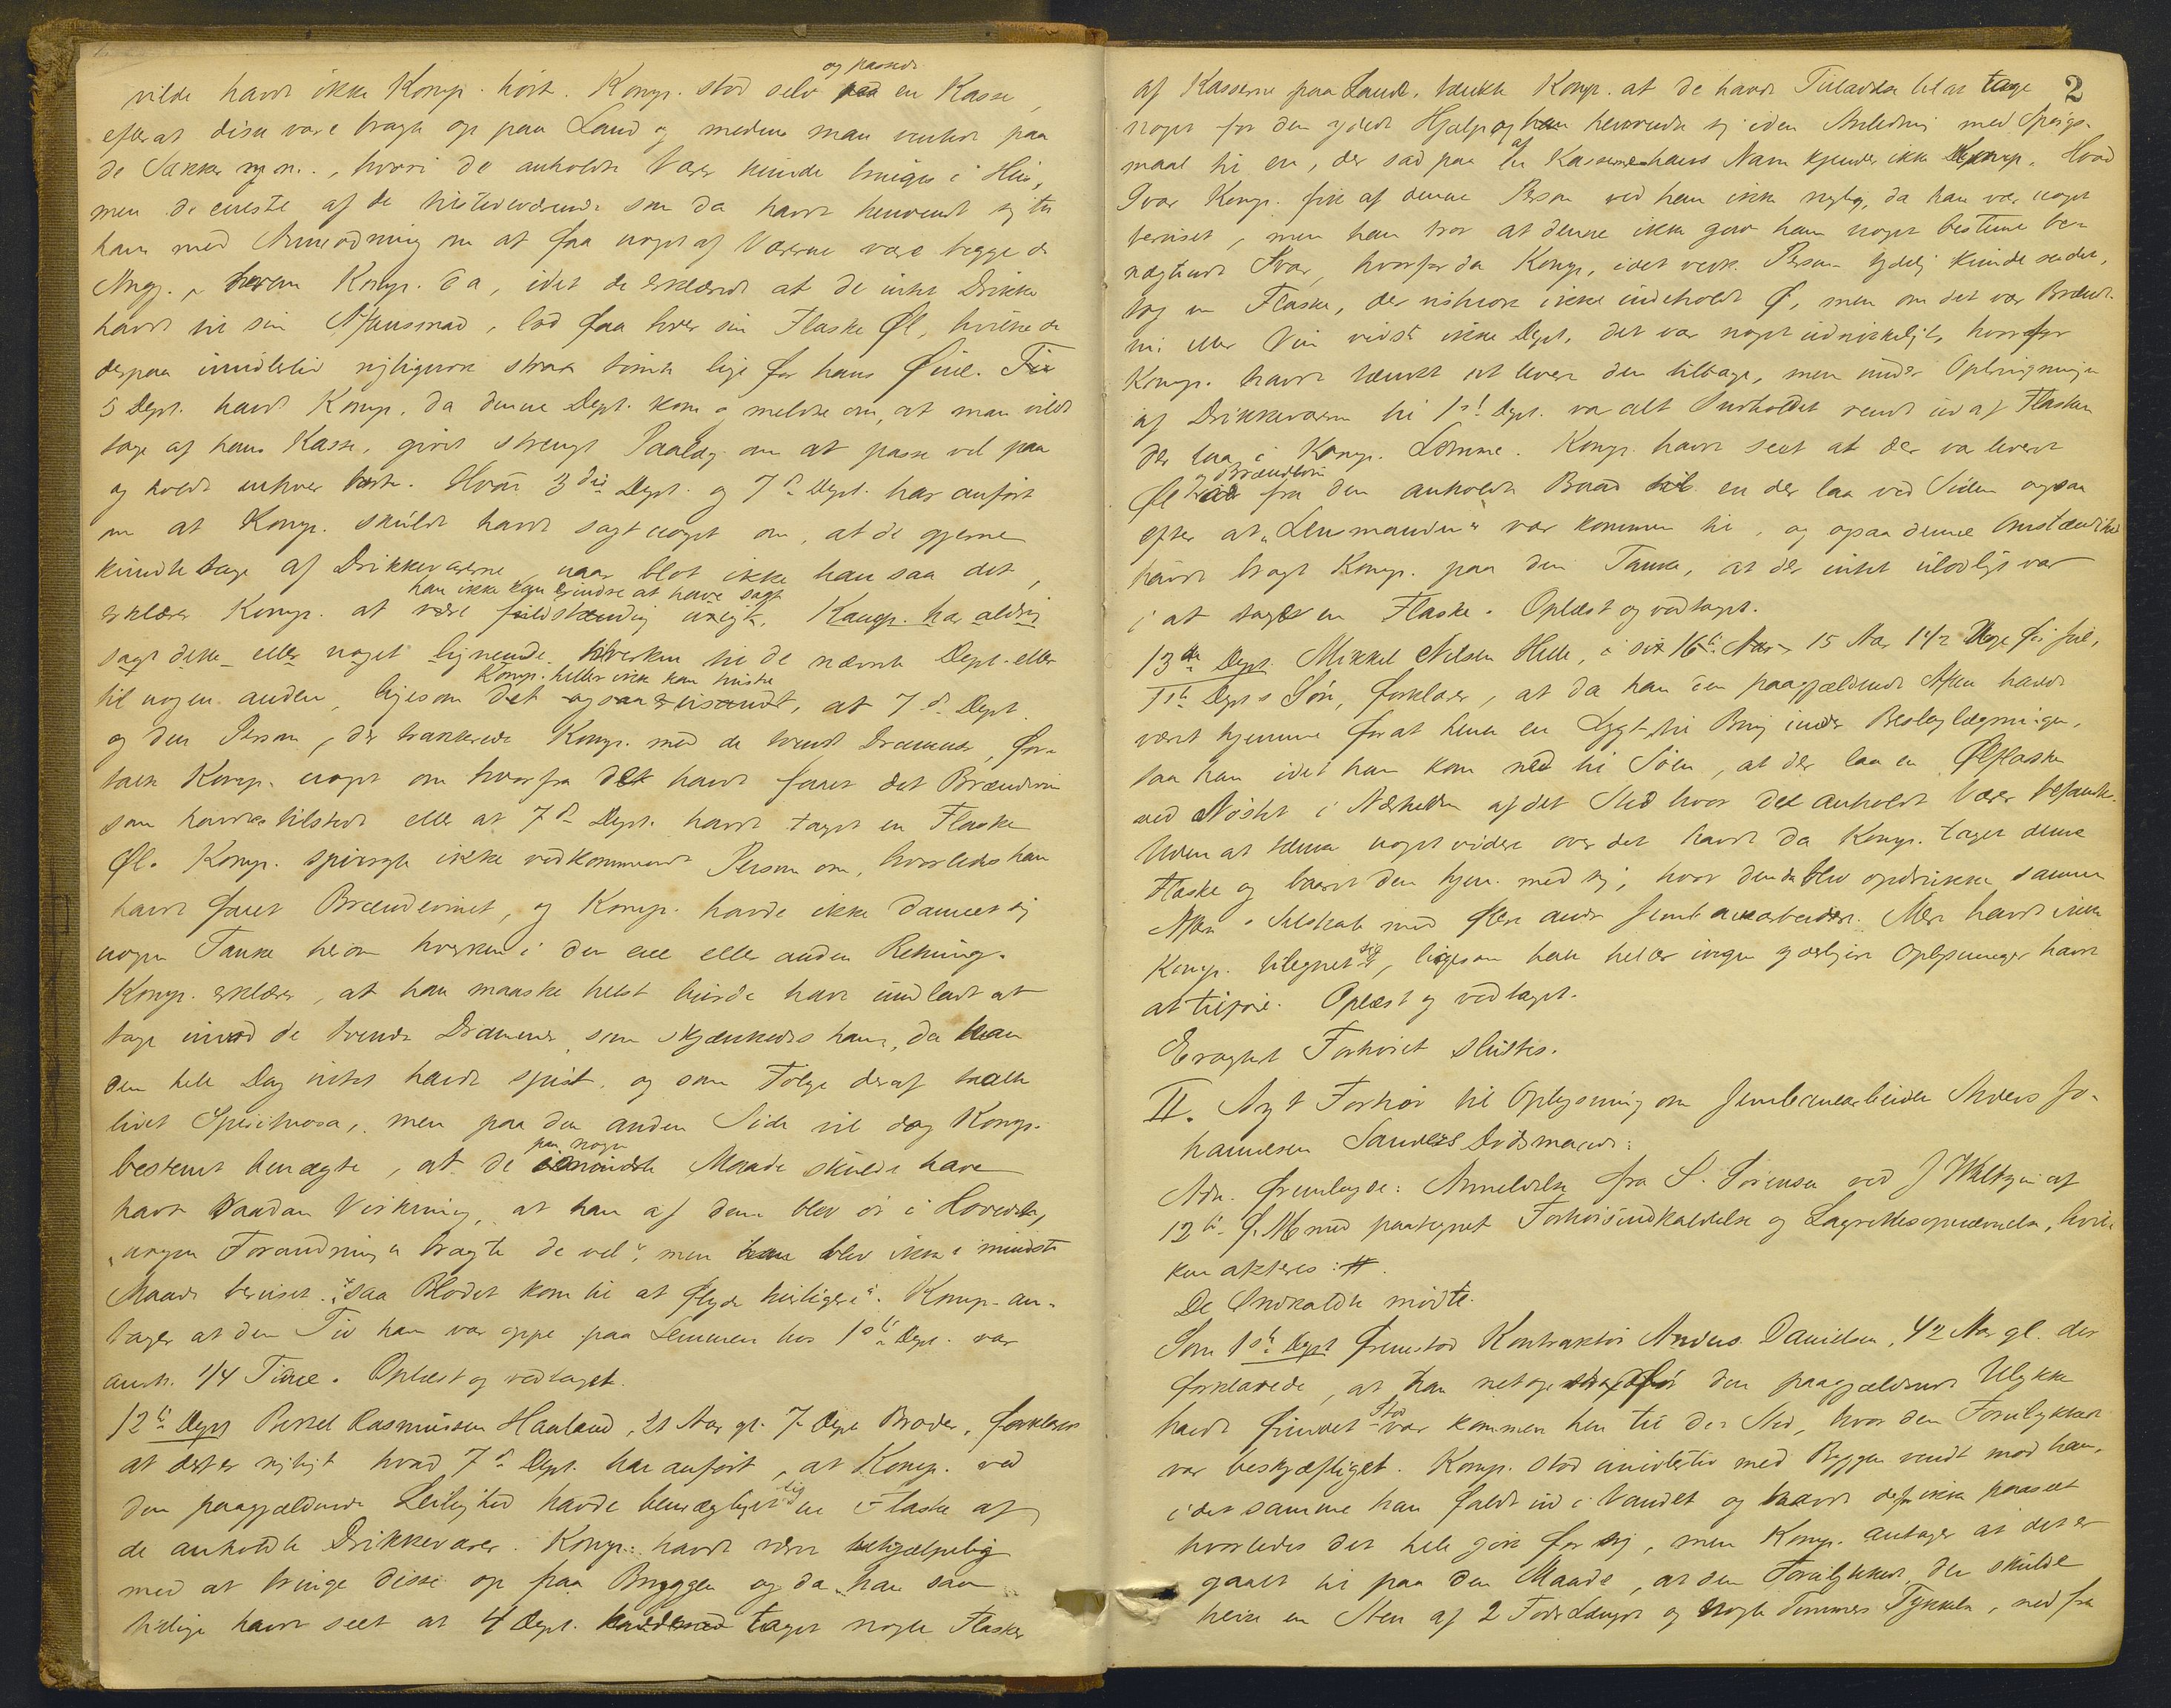 vilde havde ikke Komp. hørt. Komp. stod selv og passede en Kasse,
efterat disse vare bragte op paa Land og medens man ventede paa
de Sækker m. m., hvori de anholdte Varer kunde bringes i Hus,
men de eneste af de tilstedeværende som da havde henvendt sig til
ham med Anmodning om at faa noget af Varerne vare begge de
Ang. hvem Komp. da, idet de erklærede at de intet Drikke
havde til sin Aftensmad, lod faa hver sin Flaske Øl, hvilke de
derpaa imidlertid rigtignok strax tømte lige for hans Øine. Til
5 Dept. havde Komp. da denne Dept. kom og meldte om, at man vilde
tage af hans Kasse, givet strengt Paalæg om at passe vel paa
og holde enhver borte. Hvad 3die Dept. og 7de Dept. har anført
om at Komp. skulde havde sagt noget om, at de gjerne
kunde tage af Drikkevarerne, naar blot ikke han saa det,
han ikke kan erindre at have sagt
erklærer Komp. at være fuldstændig urigt. Komp. har aldrig
sagt dette eller noget lignende hverken til de nævnte Dept. eller
Komp. heller ikke kan huske
til nogen anden, ligesom det ogsaa er usandt, at 7de Dept.
og den Person, der trakterede Komp. med de tvende Drammer, for-
talte Komp. noget om hvorfra det havde faaet det Brændevin
som havdes tilstede eller at 7de Dept. havde taget en Flaske
Øl. Komp. spurgte ikke vedkommende Person om, hvorledes han
havde faaet Brændevinet, og Komp. havde ikke dannet sig
nogen Tanke herom hverken i den ene eller anden Retning.
Komp. erklærer, at han maaske helst burde have undladt at
tage imod de tvende Drammer, som skjænkedes ham, da han
den hele Dag intet havde spist, og som Følge deraf taalte
lidet Spirituosa, men paa den anden Side vil dog Komp.
paa nogen
bestemt benægte, at de Maade skulde have
havt saadan Virkning, at han af dem blev ør i Hovedet,
"nogen Forandring bragte de vel", men han blev ikke i mindste
Maade beruset "saa Blodet kom til at flyde hurtigere". Komp. an-
tager at den Tid han var oppe paa Lemmen hos 1ste Dept. var
1/4 Time. Oplæst og vedtaget.
12te Dept Rasmussen Hauland, 21 Aar gl. 7de Depts Broder, forklarer
at det er rigtigt hvad 7de Dept. har anført, at Komp. ved
den paagjældende Leilighed havde bemægtiget sig en Flaske af
de anholdte Drikkevarer. Komp. havde været behjælpelig
med at bringe disse op paa Bryggen og da han saa
tidlige havde seet at 4 Dept. taget nogle Flasker
2
af Kasserne paa Land, tænkte Komp. at de havde Tilladelse til at tage
noget for den ydede Hjælp og han henvendte sig i den Anledning med Spørgs-
maal til en, der sad paa en af Kasserne hans Navn kjender ikke Komp. Hvad
Svar Komp. fik af denne Person ved han ikke rigtig, da han var noget
beruset, men han tror at denne ikke gav ham noget bestemt be-
nægtende Svar, hvorfor da Komp., idet vedk. Person tydelig kunde se det,
tog en Flaske, der vistnok ikke indeholdt Øl, men om det var Brænde-
vin eller Vin vidste ikke Dept, det var noget udrikkeligt, hvorfor
Komp. havde tænkt at levere den tilbage, men under Opbringningen
af Drikkevarerne til 1ste Dept. var alt Indholdet rendt ud af Flasken
der laa i Komp. Lomme. Komp. havde seet at der var leveret
og Brændevin
Øl fra den anholdte Baad til en der laa ved Siden ogsaa
efter at "Lensmanden" var kommen til, og ogsaa denne Omstændighed
havde bragt Komp. paa den Tanke, at der intet ulovligt var
i at tage en Flaske. Oplæst og vedtaget.
13de Dept. Mikkel Nilsen Helle, i sit 16te Aar, 15 Aar 1 1/2 før Jul,
1ste Depts Søn, forklarer, at da han den paagjældende Aften havde
været hjemme for at hente en Lygt til Brug under Beslaglægningen,
saa han idet han kom ned til Søen, at der laa en Ølflaske
ved Nøstet i Nærheden af det Sted hvor det anholdte Varer befandt.
Uden at tænke noget videre over det havde da Komp. taget denne
Flaske og baaret den hjem med sig, hvor den da blev opdrukken samme
Aften i Selskab med flere andre Jernbanearbeidere. Mere havde ikke
Komp. tilegnet sig, ligesom han heller ingen yderligere Oplysninger havde
at tilføie. Oplæst og vedtaget.
Eragtet Forhøret sluttes.
II. Nyt Forhør til Oplysning om Jernbanearbeider Anders Jo-
hannesen Sandes Dødsmaade:
Adm. fremlagde: Anmeldelse fra S. Sørensen ved J af
12te f. M. med paategnet Forhørsindkaldelse og Lagrettesopnævnelse, hvil-
ken akteres: #.
De Indkaldte mødte.
Som 1ste Dept fremstod Kontraktør Anders Danielsen, 42 Aar gl. der
forklarede, at han netop strax før den paagjældende Ulykke
havde fundet Sted var kommen hen til det Sted, hvor den Forulykkede
var beskjæftiget. Komp. stod imidlertid med Ryggen vendt mod ham,
i det samme han faldt ud i Vandet og havde derfor ikke paaseet
hvorledes det hele gik for sig, men Komp. antager at det er
gaaet til paa den Maade, at den Forulykkede, der skulde
heise en Sten af 2 Fods Længde og nogle Tommers Tykkelse, ned fra